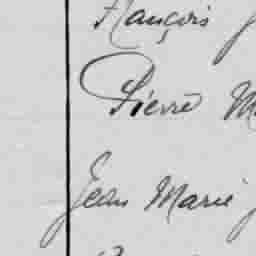 François
Pierre M
Jean Marie